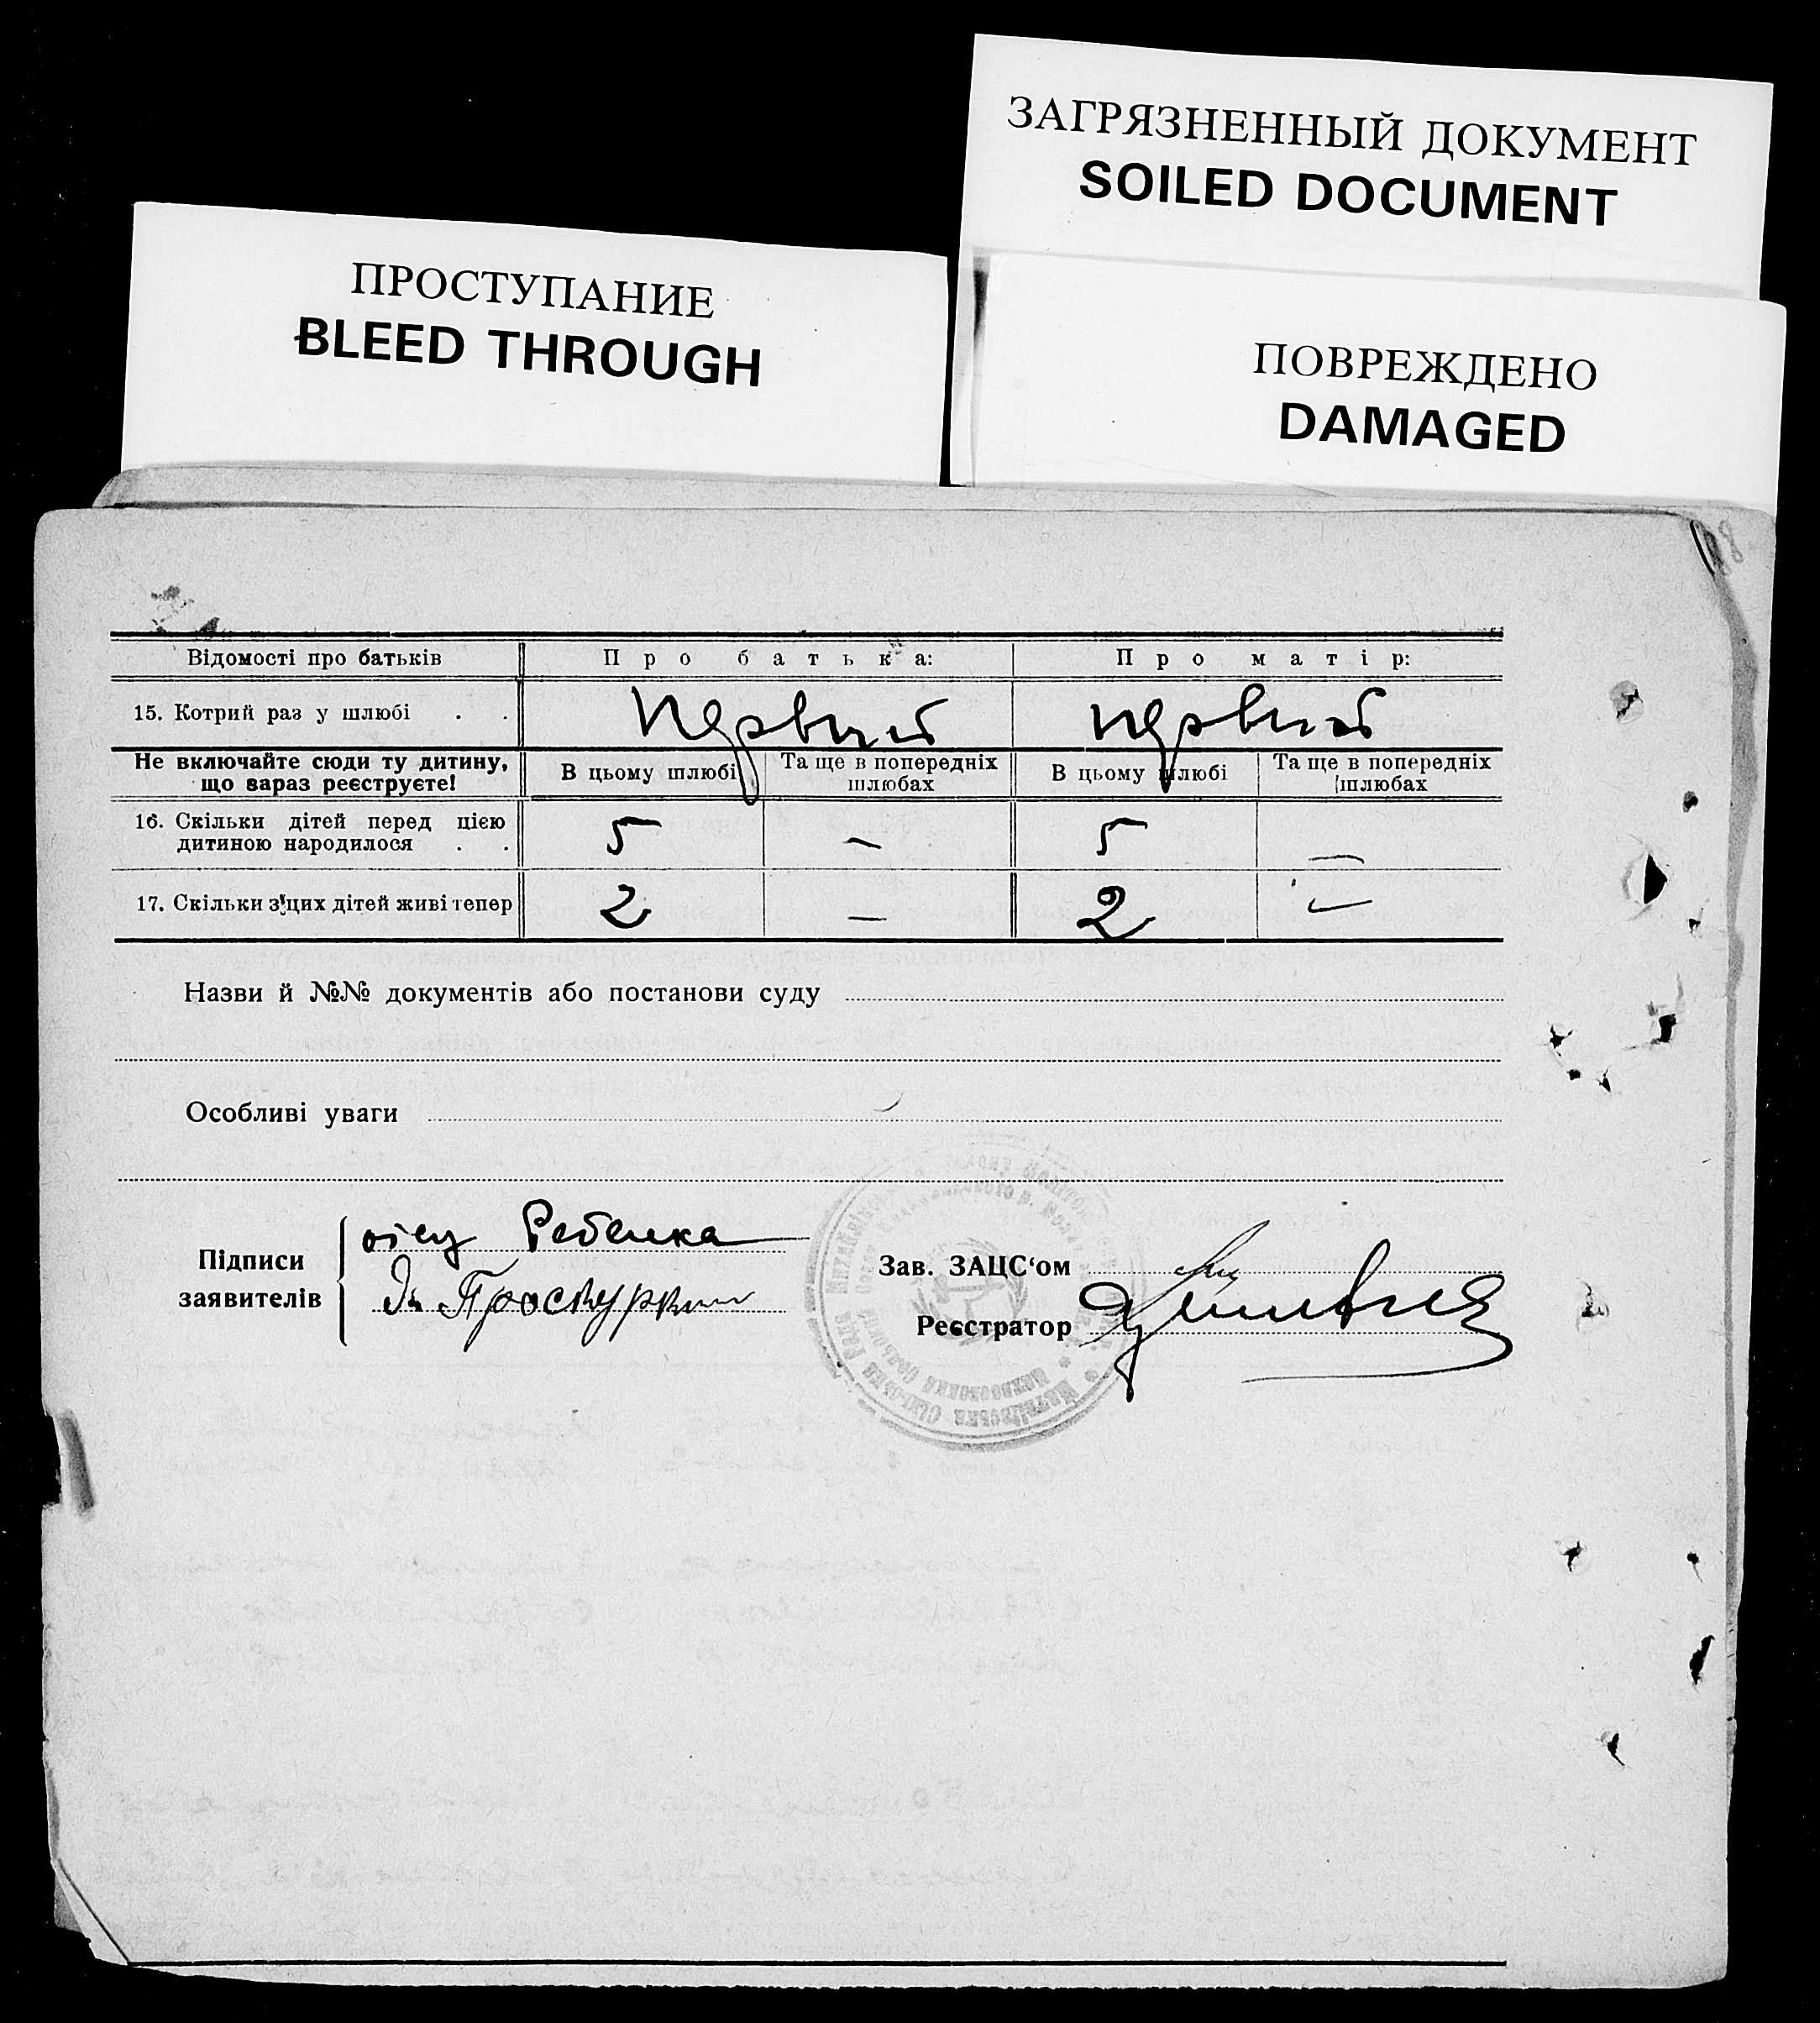 ЗАГРЯЗНЕННЫЙ ДОКУМЕНТ
SOILED DOCUMENT
ПРОСТУПАНИЕ
BLEED THROUGH
ПОВРЕЖДЕНО
DAMAGED
Відомості про батьків Про батька: Про матір:
15. Котрий раз у шлюбі . . первый первый
Не включайте сюди ту дитину, що зараз реєструєте! В цьому шлюбі Та ще в попередніх шлюбах В цьому шлюбі Та ще в попередніх шлюбах
16. Скільки дітей перед цією дитиною народилося . . 5 — 5 —
17. Скільки з цих дітей живі тепер 2 — 2 —
Назви й №№ документів або постанови суду
Особливі уваги
Підписи заявителів
отец Ребенка
Проскуркин
Зав. ЗАЦС‘ом
Реєстратор